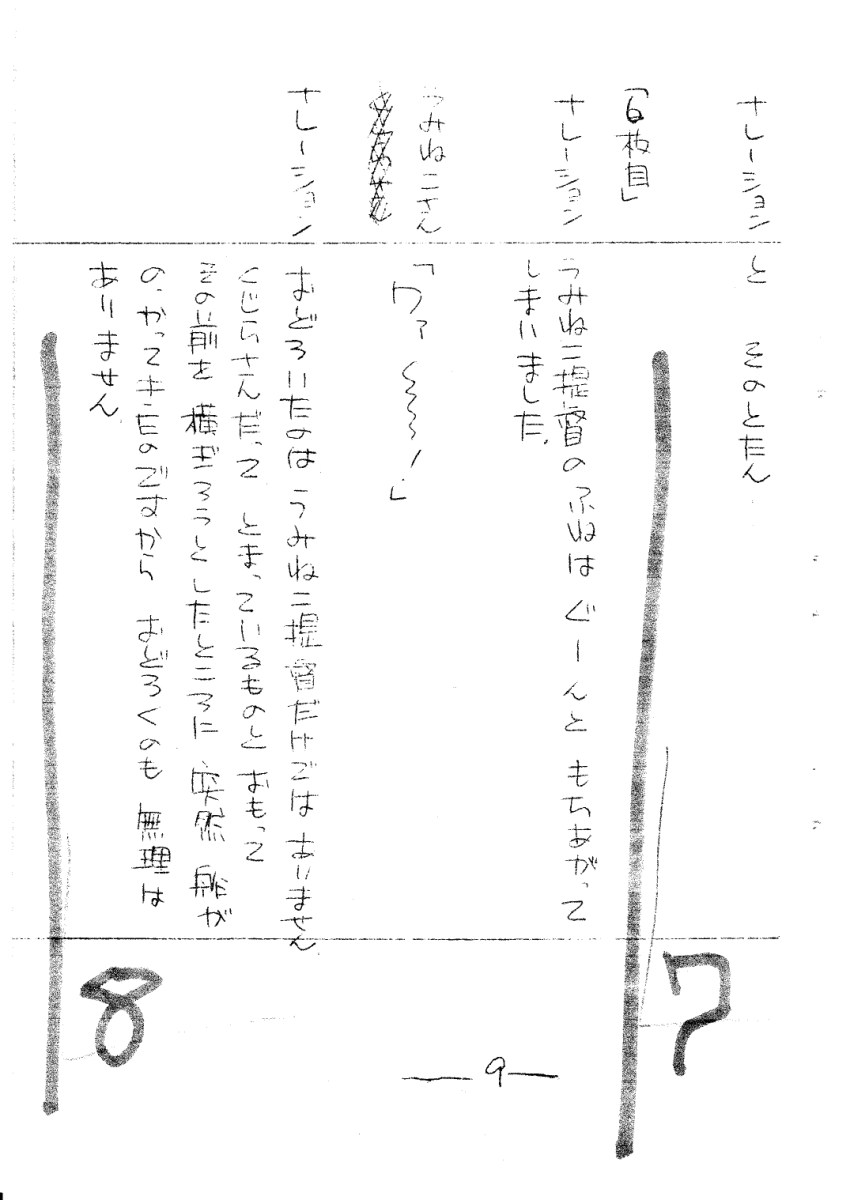 ナレーション と そのとたん
7
「6枚目」
ナレーション うみねこ提督のふねは ぐーんと もちあがって
しまいました。
うみねこさん 「ワァ〜〜〜!」
ナレーション おどろいたのは うみねこ提督だけでは ありません
くじらさんだって とまっているものと おもって
その前を 横ぎろうとしたところに 突然 船が
のっかってきたのですから おどろくのも 無理は
ありません
8
— 9 —